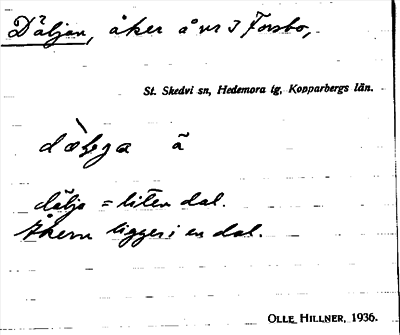 Däljan, åker å nr 3 Forsbo,
St. Skedvi sn, Hedemora tg, Kopparbergs län.
dälja = liten dal.
Åkern ligger i en dal.
OLLE HILLNER, 1936.